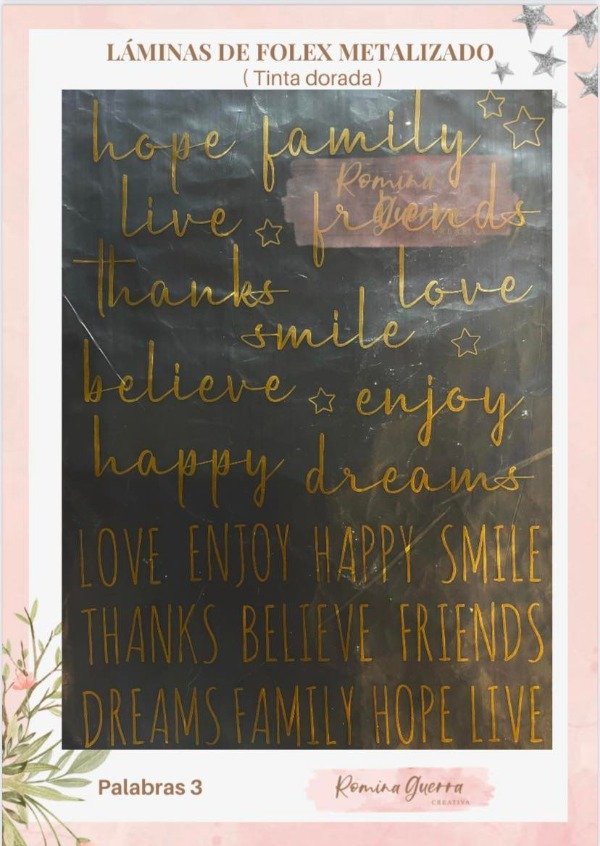 LÁMINAS DE FOLEX METALIZADO
( Tinta dorada )
hope family
Romina
live friends
Guerra
thanks love
smile
believe enjoy
happy dreams
LOVE ENJOY HAPPY SMILE
THANKS BELIEVE FRIENDS
DREAMS FAMILY HOPE LIVE
Palabras 3
Romina Guerra
CREATIVA